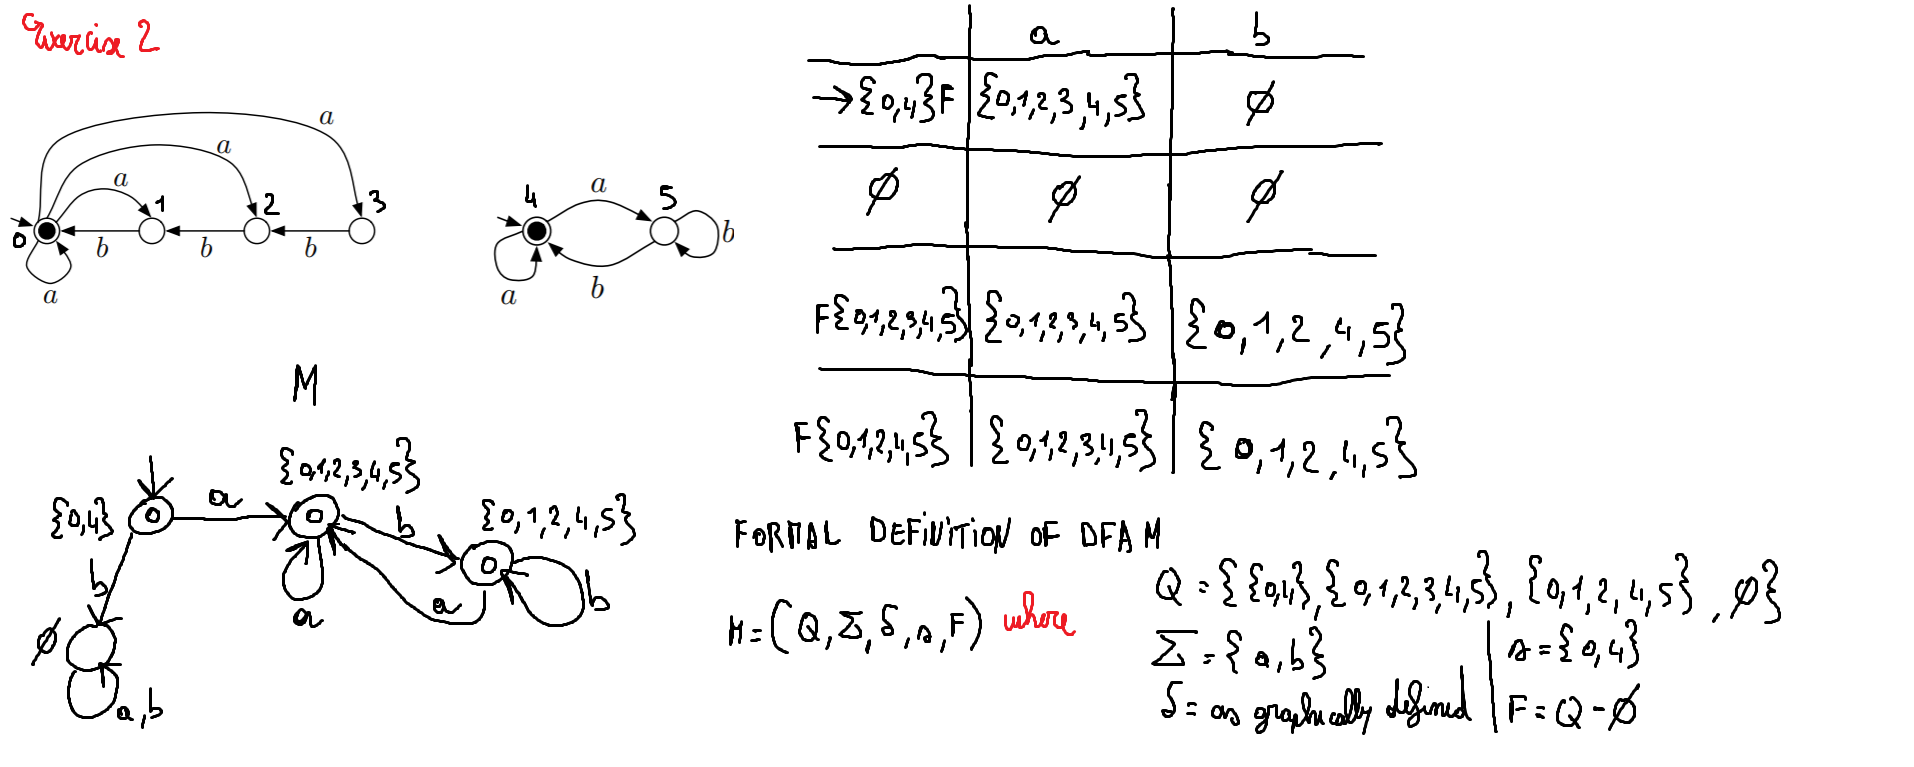 Exercise 2
a
a
a
0 1 2 3
b b b
a
4 a 5
b
a b
M
{0,4} a {0,1,2,3,4,5} b {0,1,2,4,5}
b a a b
∅
a,b
a b
→{0,4}F {0,1,2,3,4,5} ∅
∅ ∅ ∅
F{0,1,2,3,4,5} {0,1,2,3,4,5} {0,1,2,4,5}
F{0,1,2,4,5} {0,1,2,3,4,5} {0,1,2,4,5}
FORMAL DEFINITION OF DFA M
M=(Q,Σ,δ,s,F) where
Q={{0,4},{0,1,2,3,4,5},{0,1,2,4,5},∅}
Σ={a,b}
δ= as graphically defined
s={0,4}
F=Q-∅